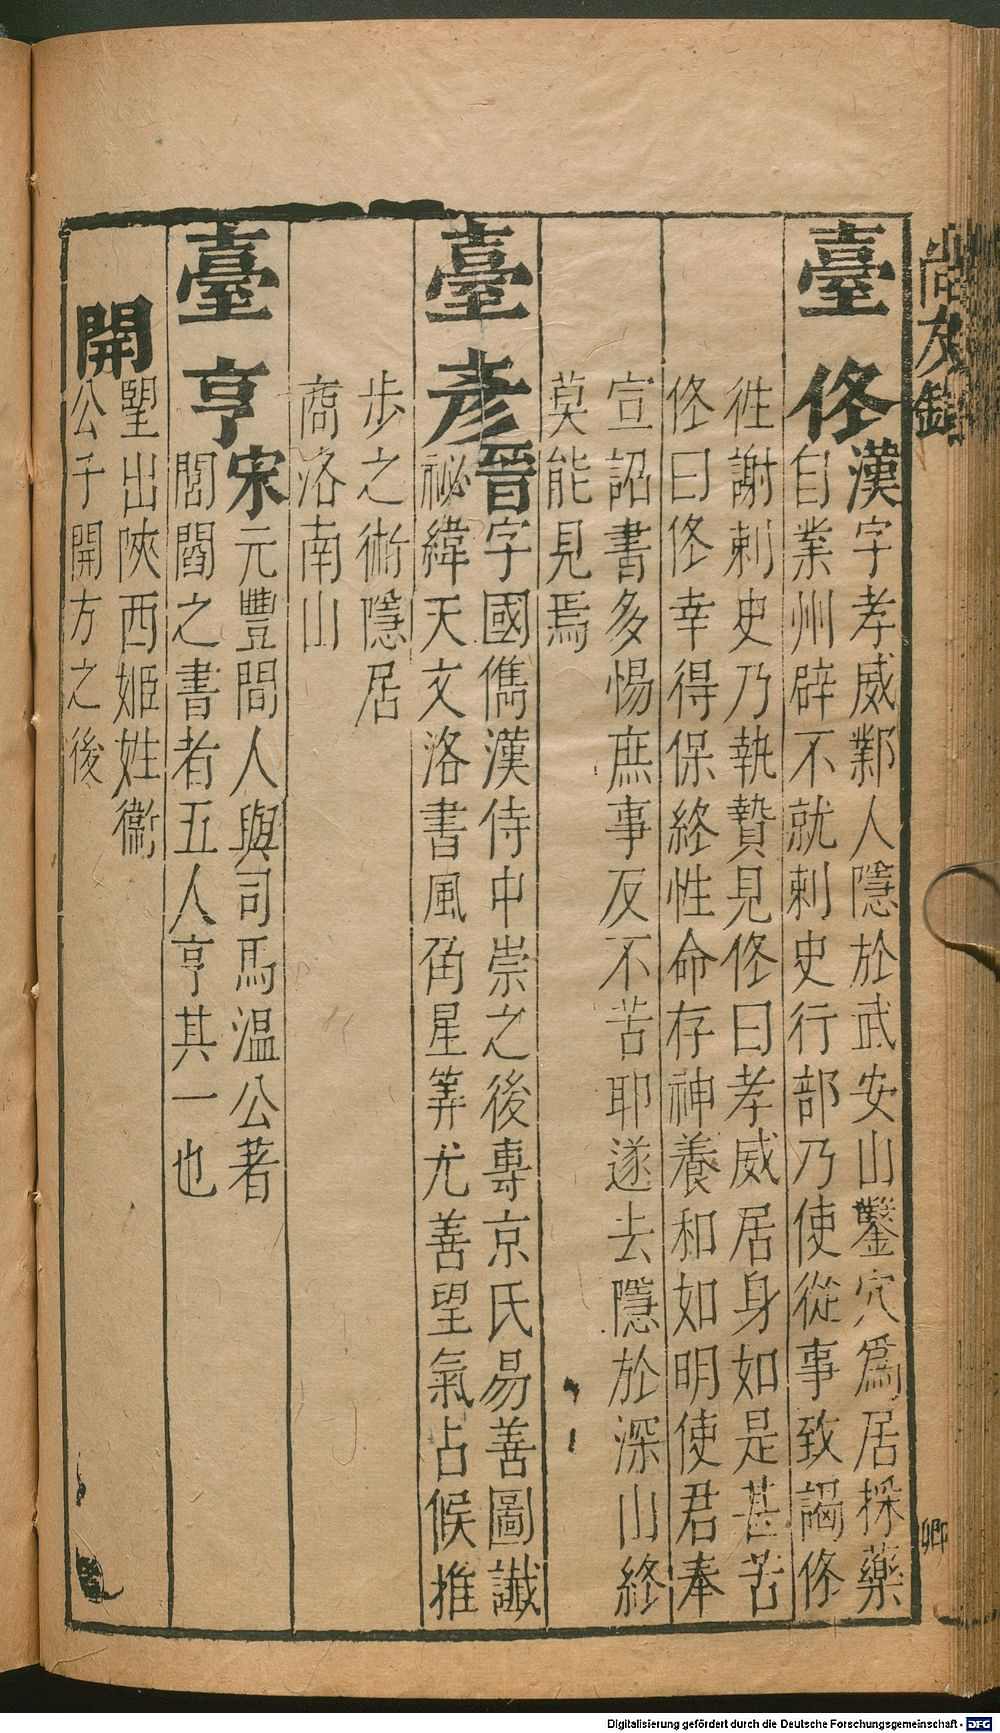 尚友錄
臺佟
漢字孝威鄴人隱於武安山鑿穴爲居採藥
自業州辟不就刺史行部乃使從事致謁佟
徃謝刺史乃執贄見佟曰孝威居身如是甚苦
佟曰佟幸得保終性命存神養和如明使君奉
宣詔書多惕庶事反不苦耶遂去隱於深山終
莫能見焉
臺彥
晉字國儁漢侍中崇之後專京氏易善圖讖
祕緯天文洛書風角星筭尤善望氣占候推
步之術隱居
商洛南山
臺亨
宋元豐間人與司馬温公著
閤之書者五人亨其一也
開
望出陝西姬姓衞
公子開方之後
卿
Digitalisierung gefördert durch die Deutsche Forschungsgemeinschaft - DFG